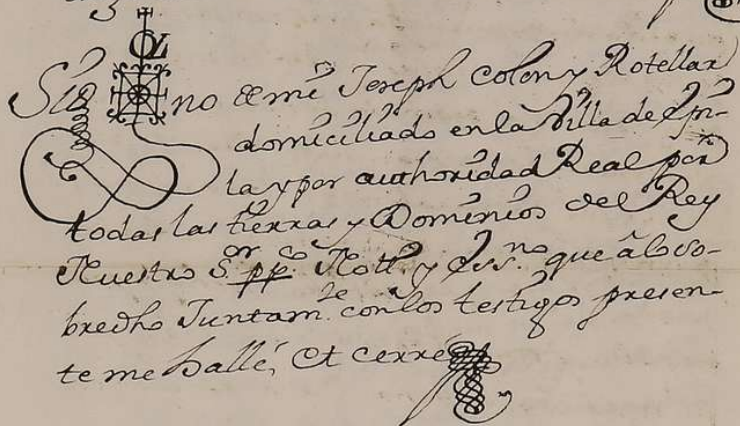 Sig no de mi Joseph Colon y Rotellar
domiciliado en la Villa de
la y por authoridad Real por
todas las tierras y Dominios del Rey
Nuestro S.or pp.co Nott. y Ess.no que â lo so-
bredho Juntam.te con los testigos presen-
te me hallé, Et cerré